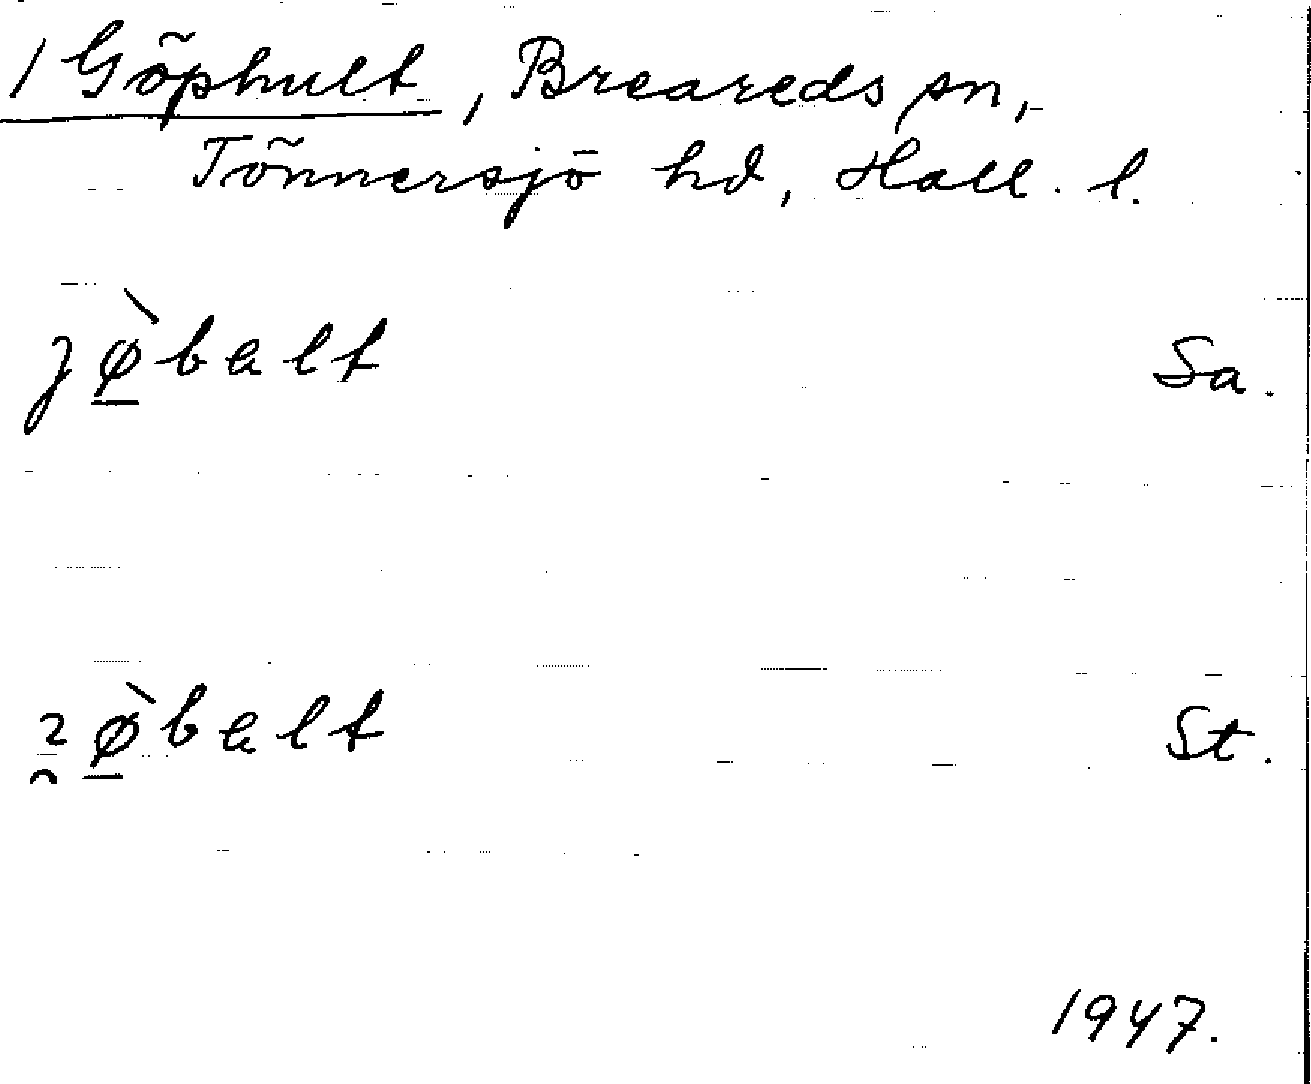 1 Göphult, Breareds sn,
Tönnersjö hd, Hall. l.
jø̠̀balt Sa.
ɂ̯ø̠̀balt St.
1947.